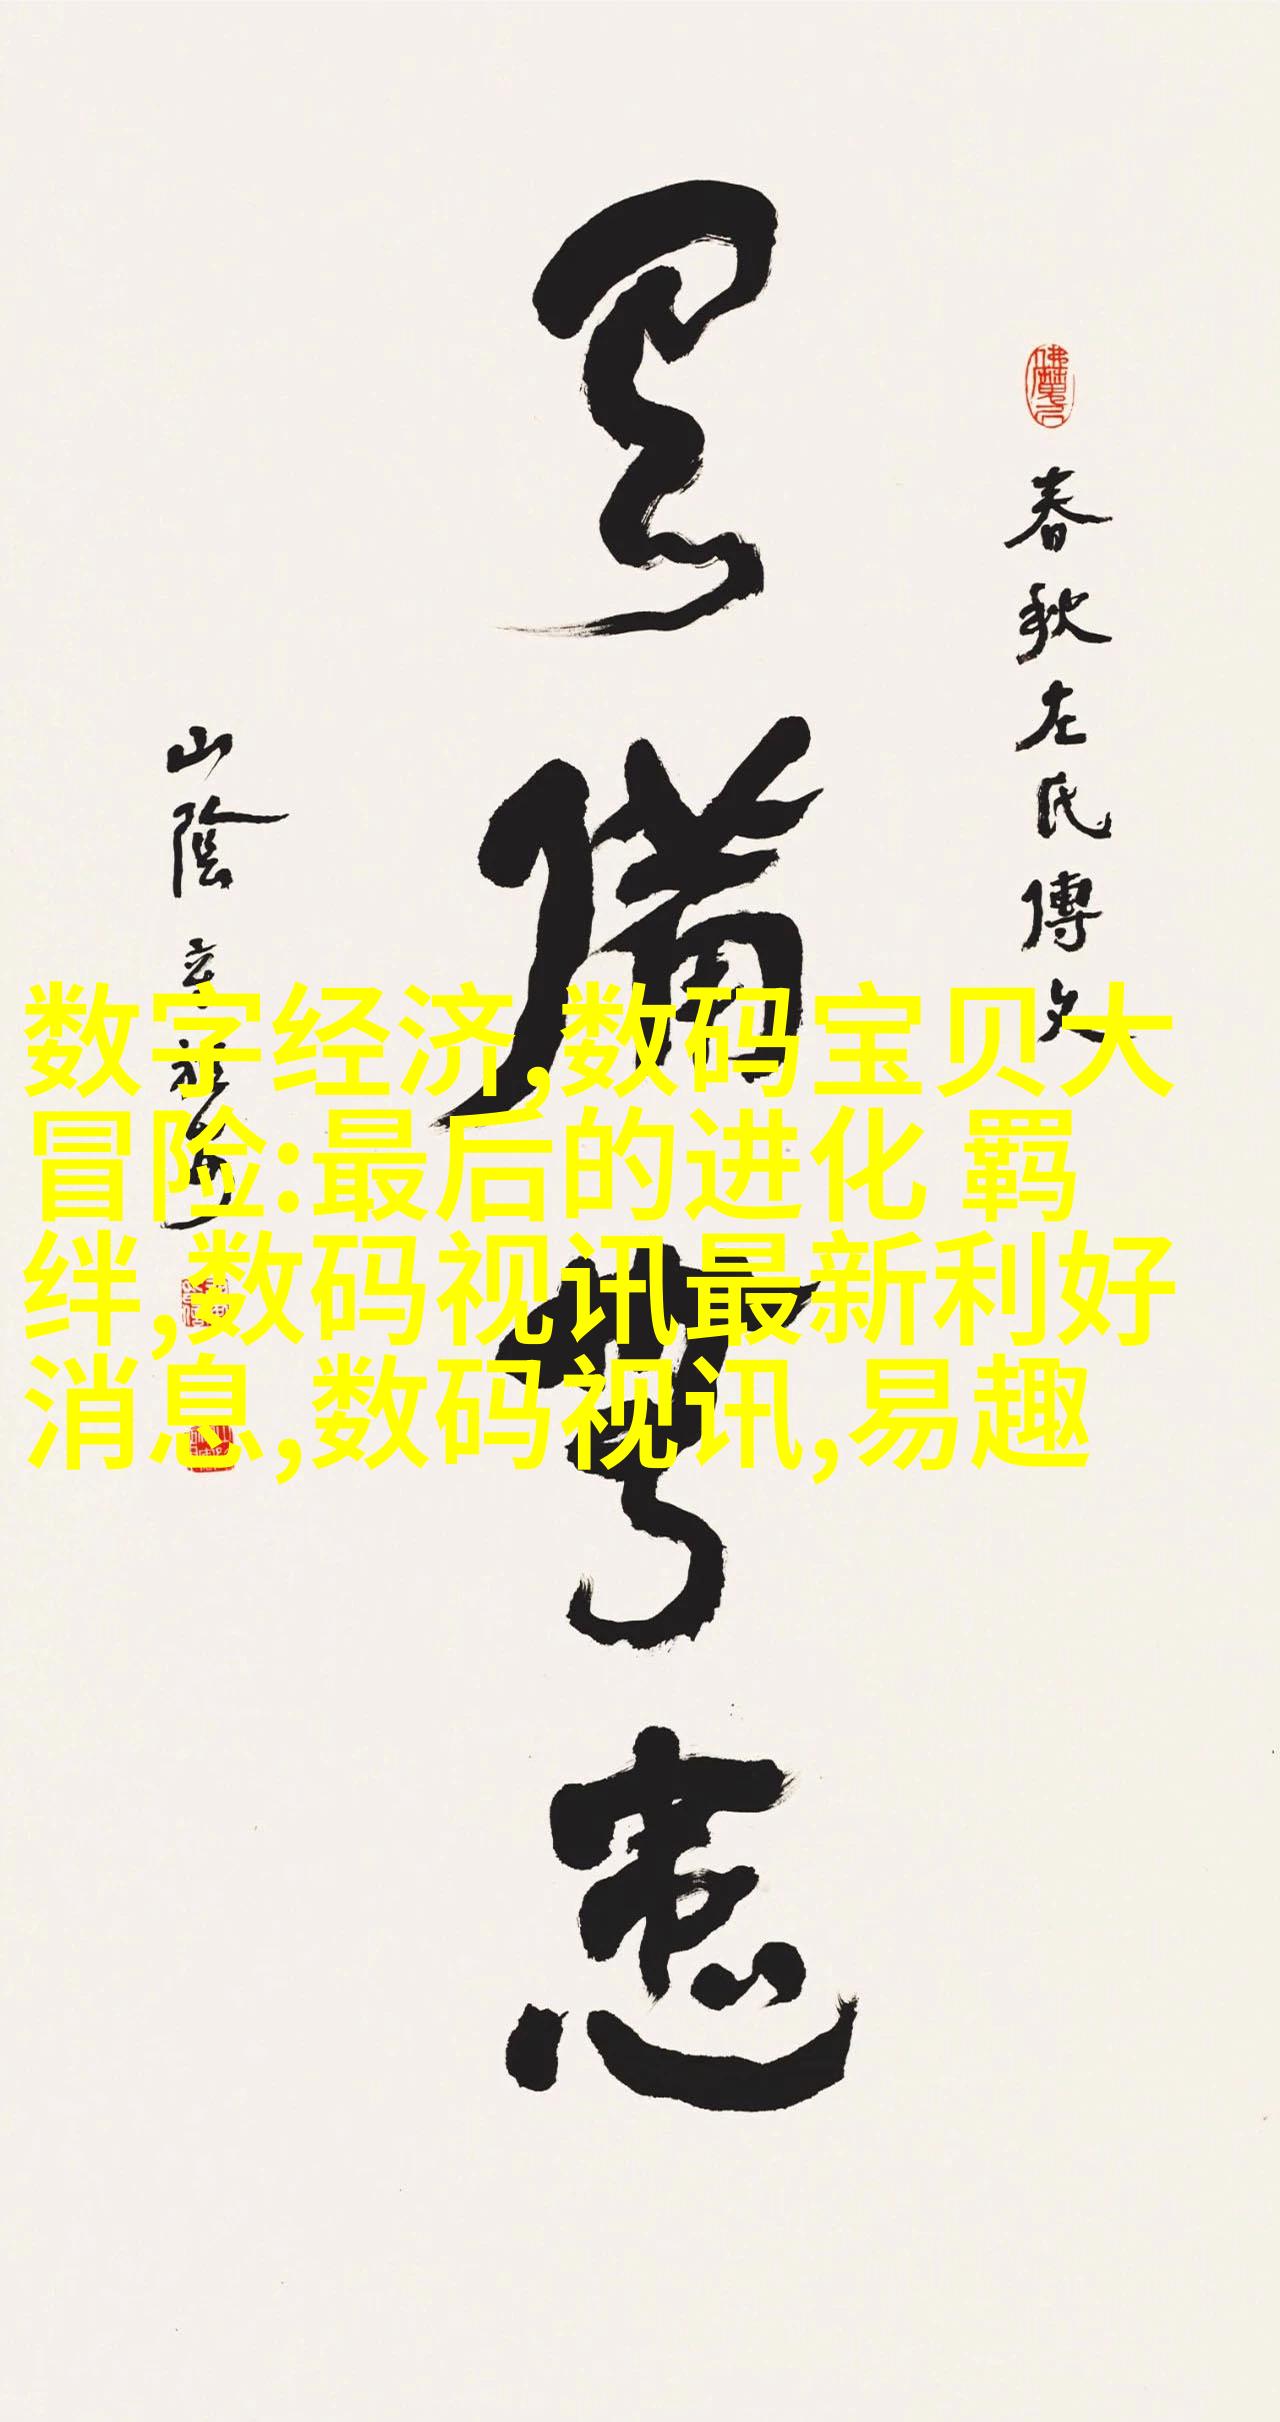 春秋左氏傳文
有備無患
山陰
数字经济,数码宝贝大
冒险:最后的进化 羁
绊,数码视讯最新利好
消息,数码视讯,易趣